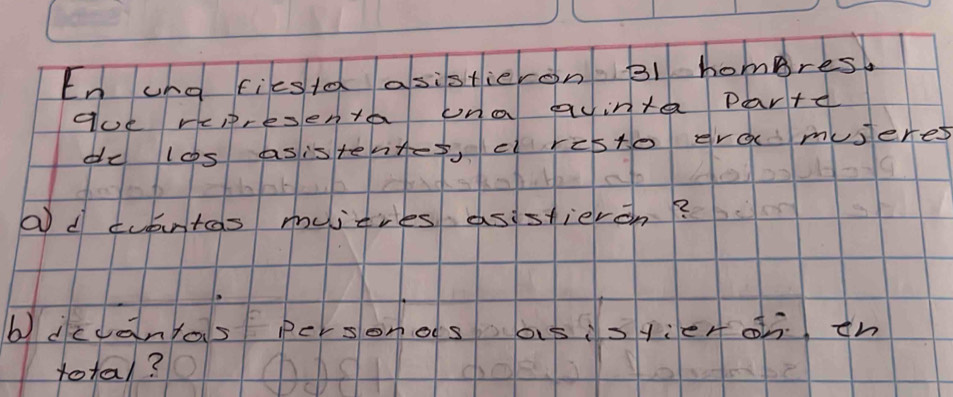 En una fiesta asistierón 31 homBres.
que representa una quinta Parte
de los asistentes, el resto era mujeres
a) ¿ cuántas mujeres asistierón?
b) ¿cuántas Personas asistierón, en
total?